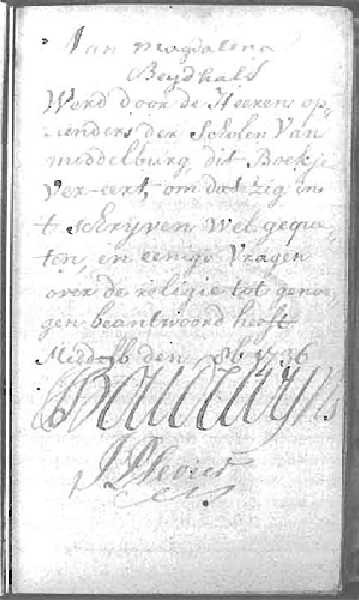 Aan Magdalena
Beydhals
Werd door de Heeren op,
zienders der Scholen Van
middelburg, dit Boekje
Ver-eert, om dat zig in
t schryven wel gequee,
ten, en eenige Vragen
over de religie tot genoe
gen beantwoord heeft
Middelb den 8b 1736
Boudewyns
J Plevier